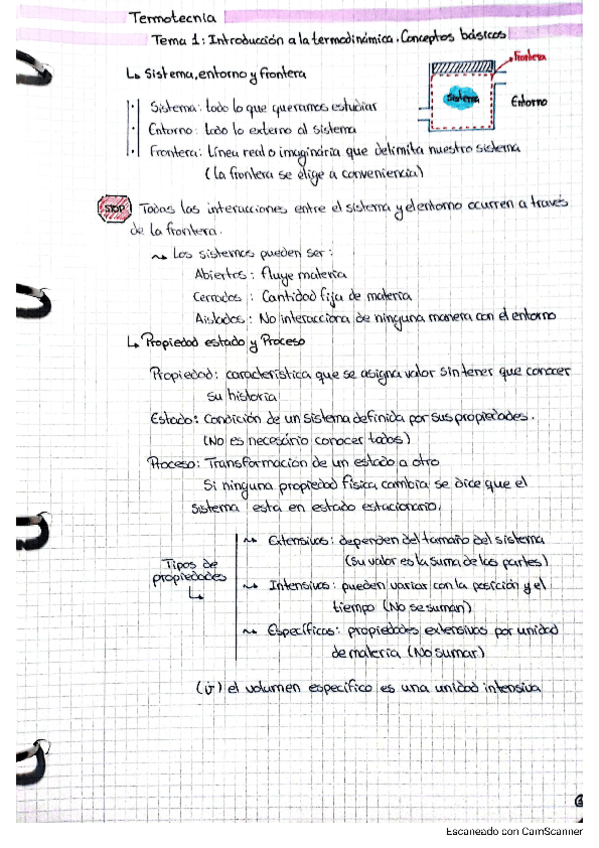 Termotecnia
Tema 1: Introducción a la termodinámica. Conceptos básicos
↳ Sistema, entorno y frontera
Frontera
Sistema
Entorno
· Sistema: todo lo que queramos estudiar
· Entorno: todo lo externo al sistema
· Frontera: Línea real o imaginária que delimita nuestro sistema
(la frontera se elige a conveniencia)
STOP Todas las interacciones entre el sistema y el entorno ocurren a través
de la frontera.
Los sistemas pueden ser:
Abiertos: fluye materia
Cerrados: Cantidad fija de materia
Aislados: No interacciona de ninguna manera con el entorno
↳ Propiedad estado y Proceso
Propiedad: característica que se asigna valor sin tener que conocer
su historia
Estado: Condición de un sistema definida por sus propiedades.
(No es necesário conocer todas)
Proceso: Transformación de un estado a otro
Si ninguna propiedad física cambia se dice que el
sistema está en estado estacionario.
Tipos de
propiedades
↳
Extensivas: dependen del tamaño del sistema
(su valor es la suma de las partes)
Intensivas: pueden variar con la posición y el
tiempo (No se suman)
Específicas: propiedades extensivas por unidad
de materia (No sumar)
el volumen específico es una unidad intensiva
Escaneado con CamScanner